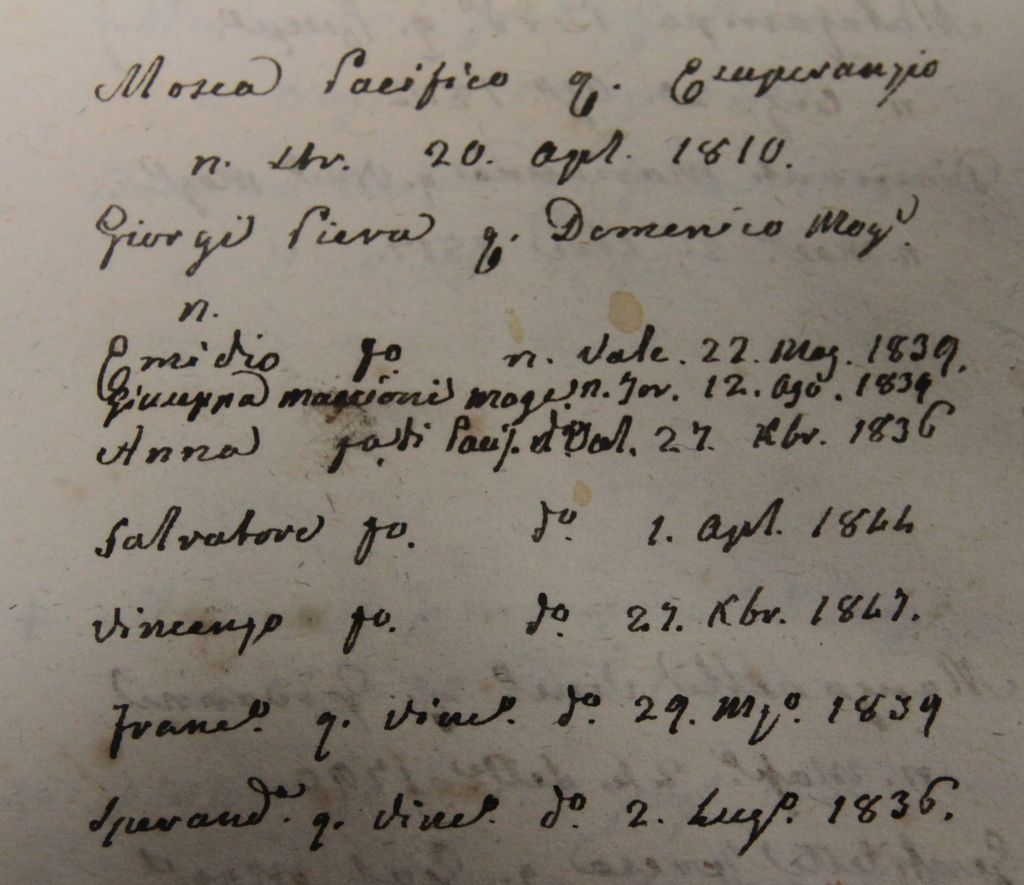 Mosca Pacifico q. Esuperanzio
n. 20. Apl. 1810.
Giorgi Piera q. Domenico Mog.
n.
Emidio fo n. Vale. 22. Mag. 1839.
Giuseppa Maccioni moge. n. Jov. 12. Ago. 1839
Anna fa di Pacif. n. Val. 27. Xbr. 1836
Salvatore fo. do. 1. Apl. 1844
Vincenzo fo. do. 27. Xbr. 1847.
Franco. q. Vinco. do. 29. Mzo. 1839
Sperand. q. Vinco. do. 2. Lugo. 1836.